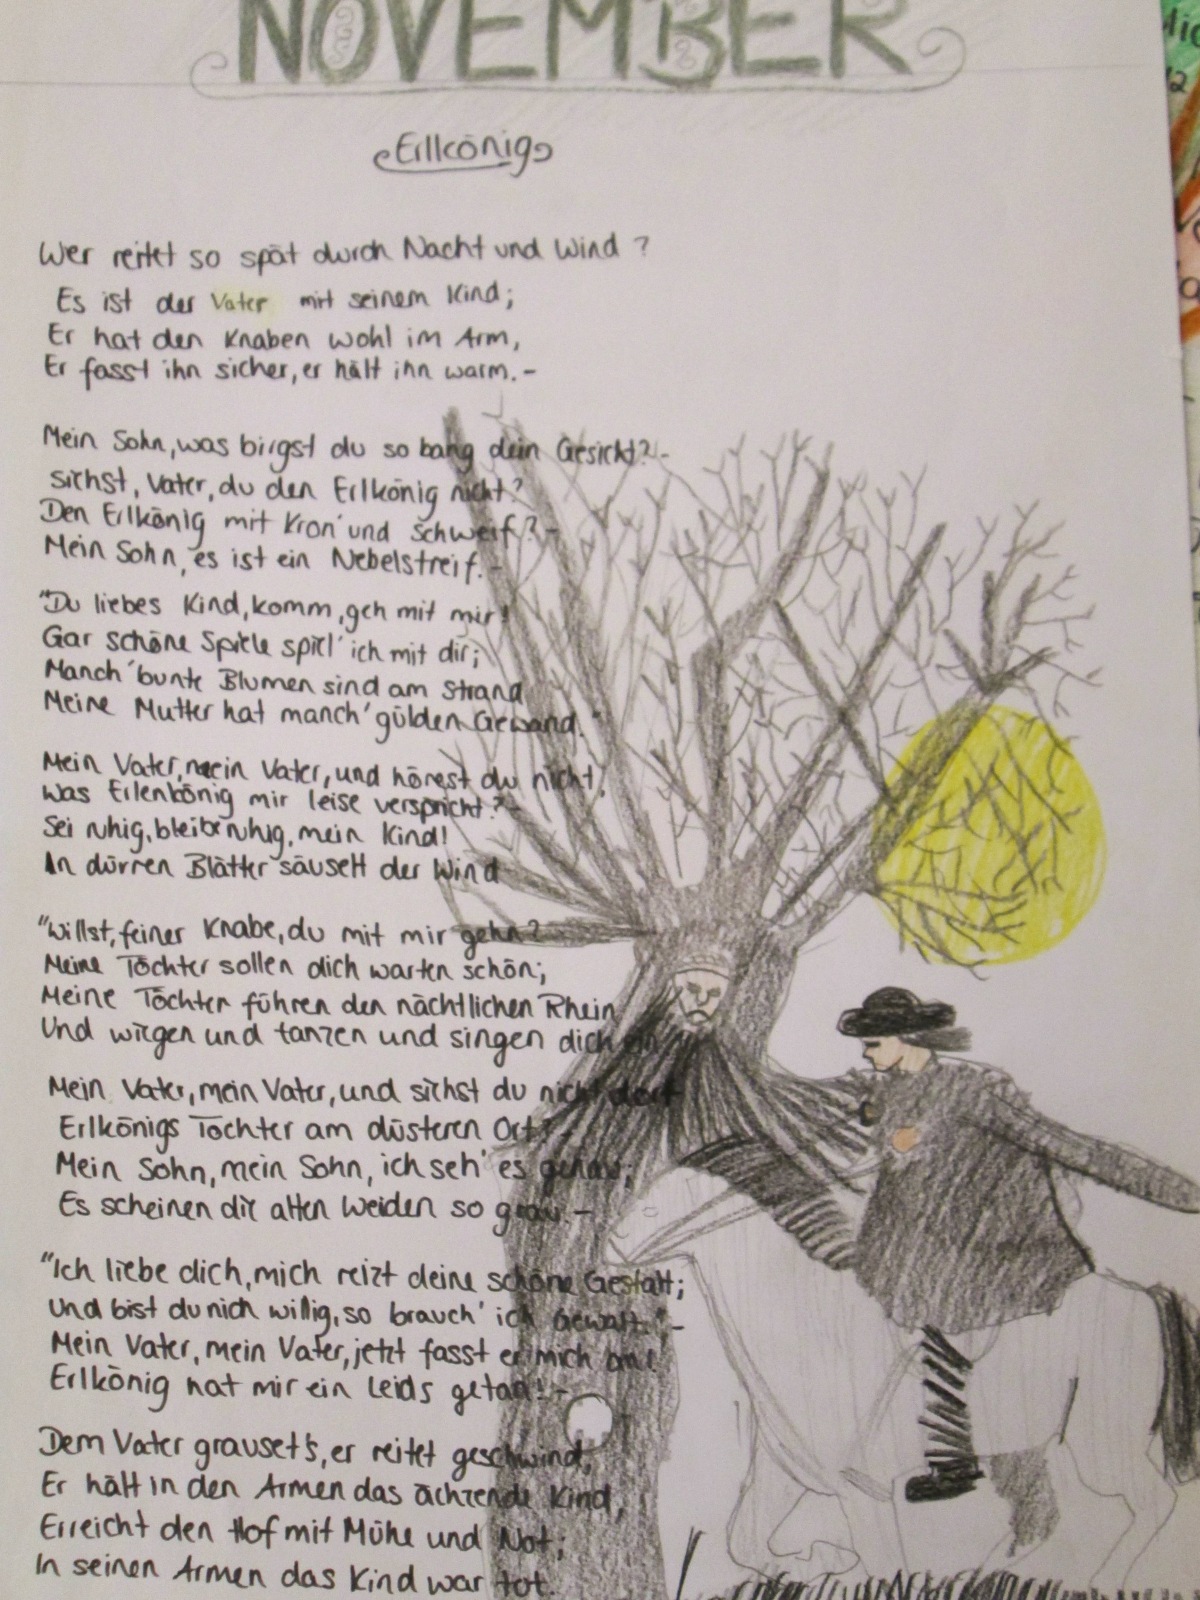 NOVEMBER
Erlkönig
Wer reitet so spät durch Nacht und Wind?
Es ist der Vater mit seinem Kind;
Er hat den Knaben wohl im Arm,
Er fasst ihn sicher, er hält ihn warm.-
Mein Sohn, was birgst du so bang dein Gesicht?-
Siehst, Vater, du den Erlkönig nicht?
Den Erlkönig mit Kron' und Schweif?-
Mein Sohn, es ist ein Nebelstreif.-
"Du liebes Kind, komm, geh mit mir!
Gar schöne Spiele spiel' ich mit dir;
Manch' bunte Blumen sind am Strand
Meine Mutter hat manch' gülden Gewand."
Mein Vater, mein Vater, und hörest du nicht,
Was Erlenkönig mir leise verspricht?-
Sei ruhig, bleibe ruhig, mein Kind!
In dürren Blätter säuselt der Wind
"Willst, feiner Knabe, du mit mir gehn?
Meine Töchter sollen dich warten schön;
Meine Töchter führen den nächtlichen Rhein
Und wiegen und tanzen und singen dich ein
Mein Vater, mein Vater, und siehst du nicht dort
Erlkönigs Töchter am düsteren Ort?-
Mein Sohn, mein Sohn, ich seh' es genau;
Es scheinen die alten Weiden so grau.-
"Ich liebe dich, mich reizt deine schöne Gestalt;
Und bist du nich willig, so brauch' ich Gewalt."-
Mein Vater, mein Vater, jetzt fasst er mich an!
Erlkönig hat mir ein Leids getan!-
Dem Vater grauset's, er reitet geschwind,
Er hält in den Armen das ächzende Kind,
Erreicht den Hof mit Mühe und Not;
In seinen Armen das Kind war tot.